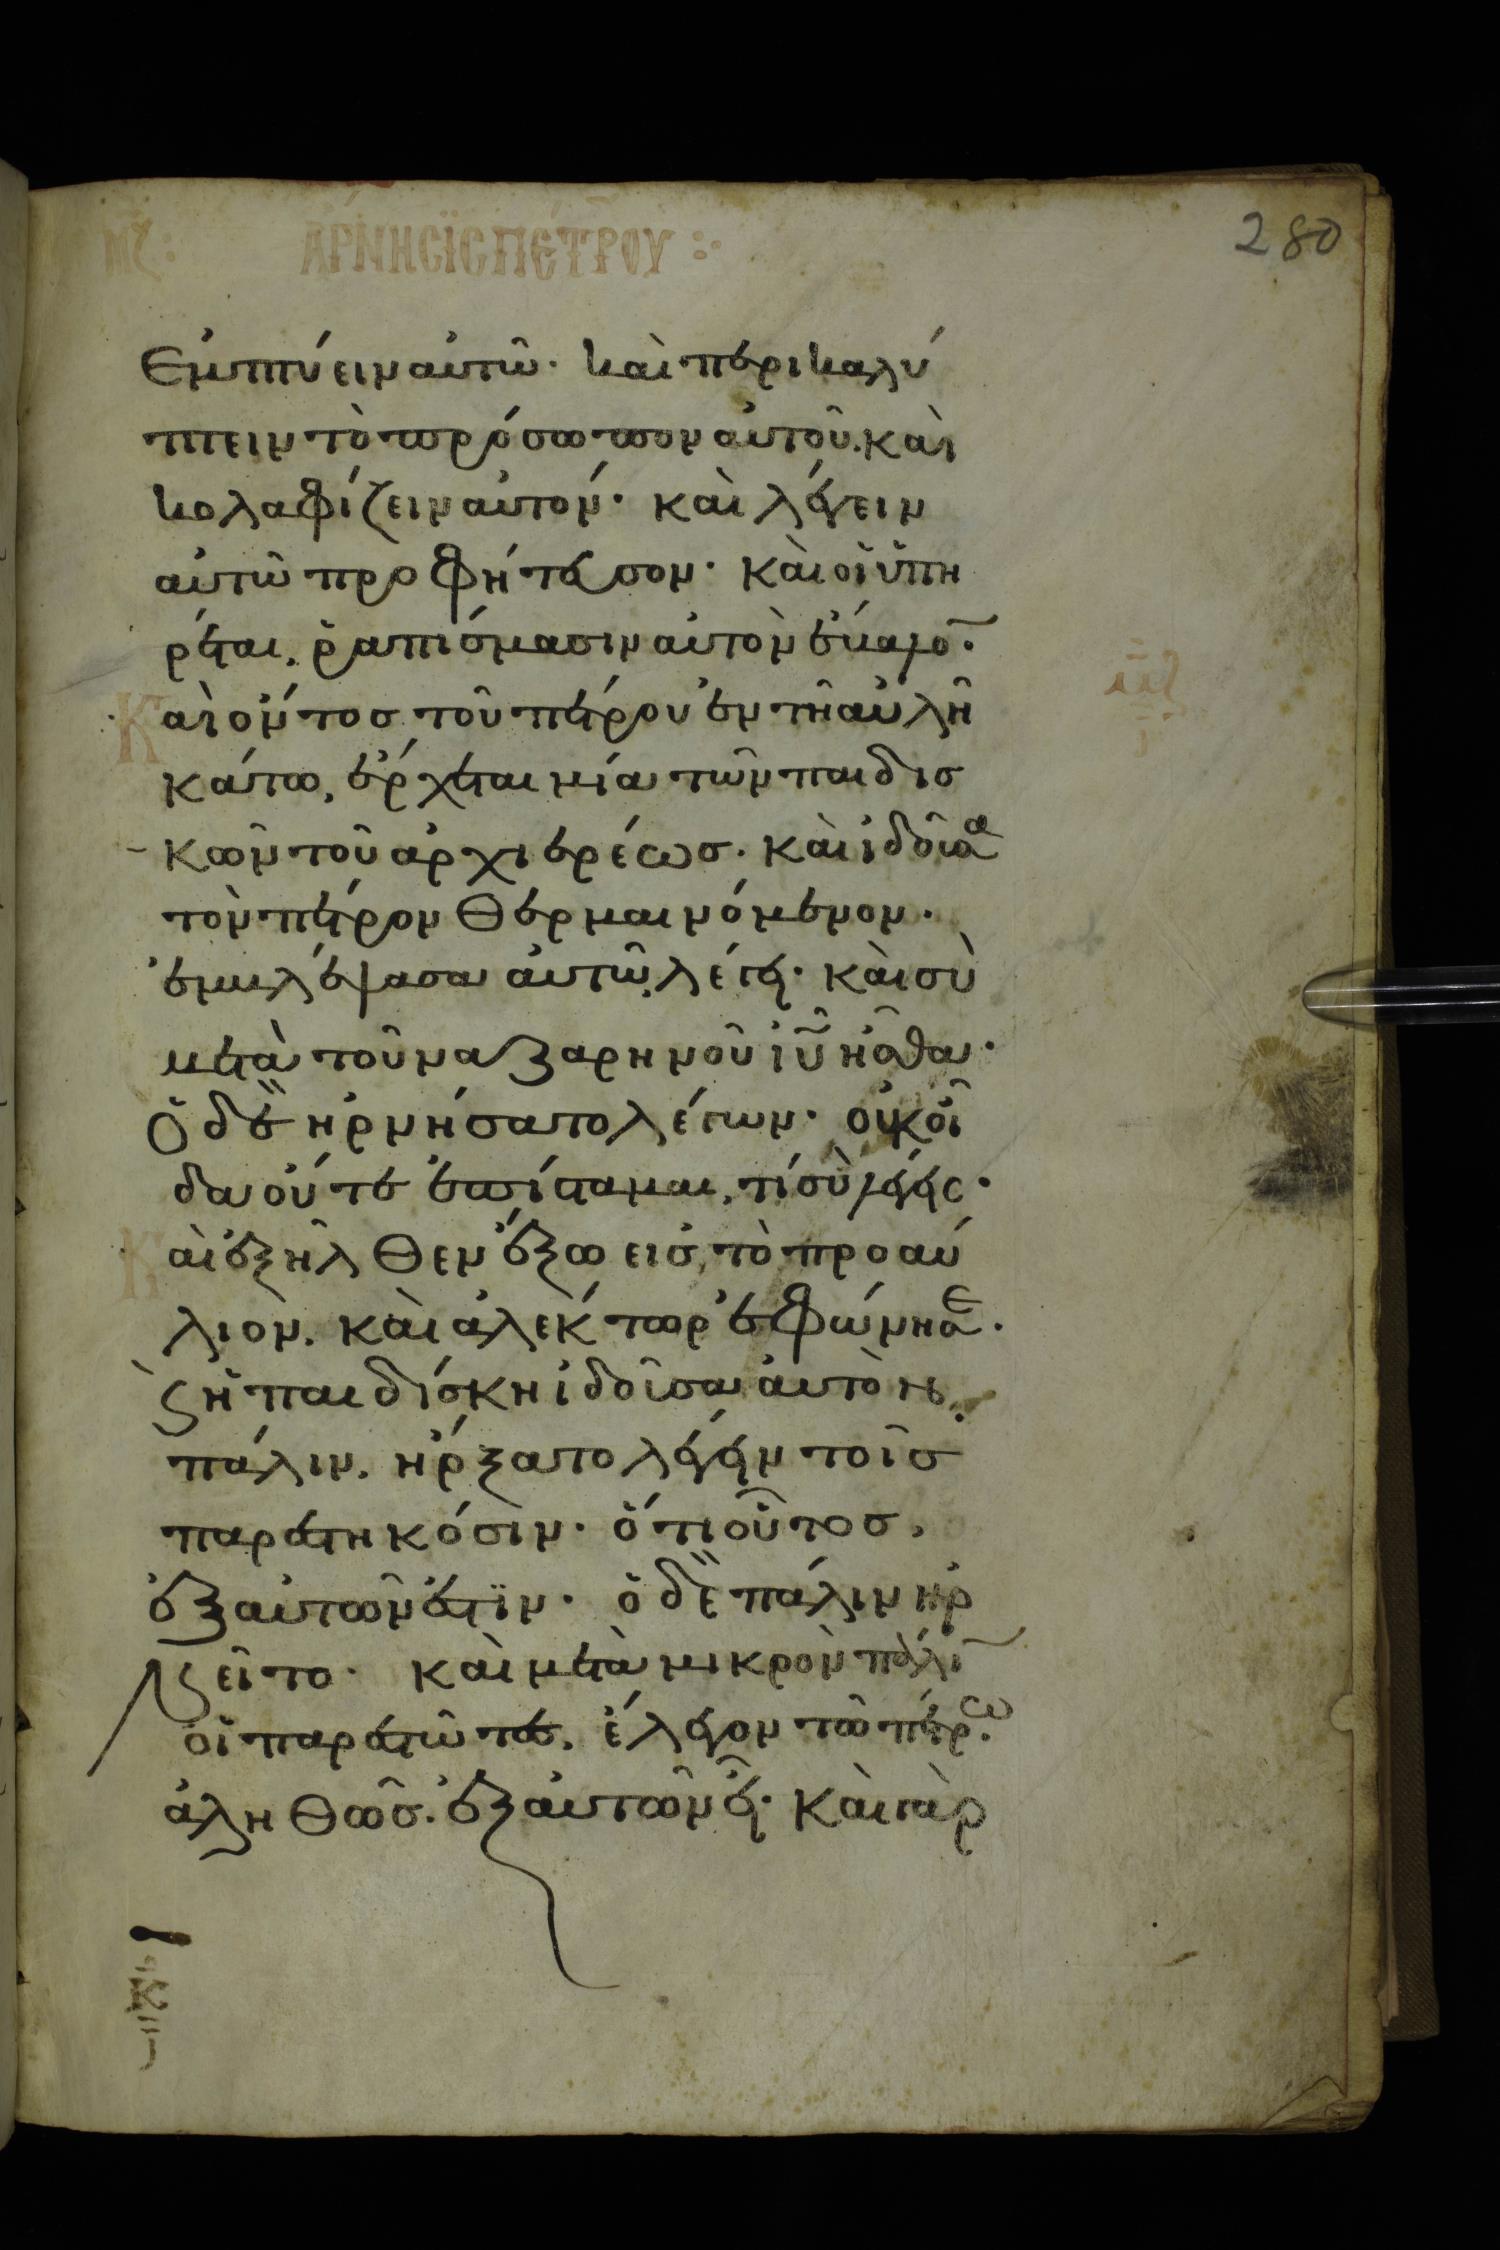 μζ: ἌΡΝΗCΙC ΠΈΤΡΟΥ :·
280
ἐμπτύειν αὐτῶ· καὶ περικαλύ
πτειν τὸ πρόσωπον αὐτοῦ. καὶ
κολαφίζειν αὐτόν· καὶ λέγειν
αὐτῶ προφήτευσον· καὶ οἱ ὑπη
ρέται, ῥαπίσμασιν αὐτὸν ἔβαλο̄·
Καὶ ὄντος τοῦ πέτρου ἐν τῆ αὐλῆ
κάτω, ἔρχεται μία τῶν παιδισ
κῶν τοῦ ἀρχιερέωσ. καὶ ἰδοῦσα
τὸν πέτρον θερμαινόμενον.
ἐμβλέψασα αὐτῶ, λέγει· καὶ σὺ
μετὰ τοῦ ναζαρηνοῦ ἰῡ ἦσθα·
Ὁ δὲ ἠρνήσατο λέγων· οὐκ οἶ
δα οὔτε ἐπίσταμαι, τί σὺ λέγεις·
Καὶ ἐξῆλθεν ἔξω εἰς τὸ προαύ
λιον. καὶ ἀλέκτωρ ἐφώνησε.
ϛ ἡ παιδίσκη ἰδοῦσα αὐτὸν,
πάλιν. ἤρξατο λέγειν τοῖσ
παρεστηκόσιν· ὅτι οὗτοσ,
ἐξ αὐτῶν ἐστϊν· ὁ δὲ πάλιν ἠρ
νεῖτο· καὶ μετὰ μικρὸν πάλῑ
οἱ παρεστῶτες, ἔλεγον τῶ πέτρω.
ἀληθῶσ. ἐξ αὐτῶν εἶ· καὶ γὰρ